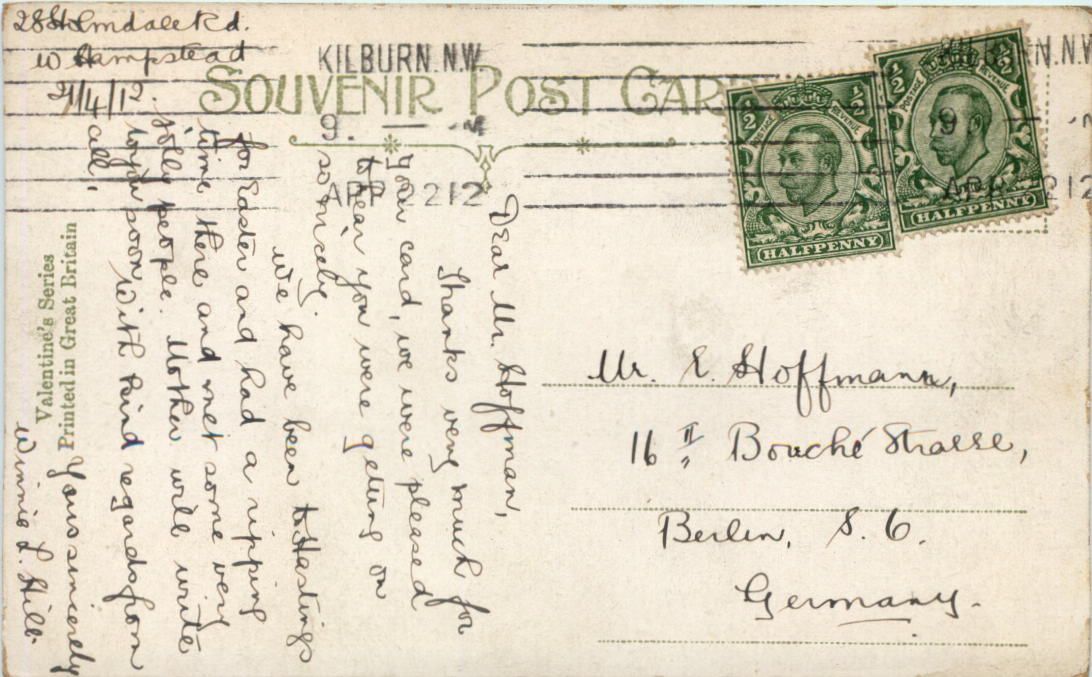 28 Holmdale Rd.
W Hampstead
21/4/12.
KILBURN. N.W.
9. — M
APR 22 12
KILBURN. N.W.
9
APR 22 12
SOUVENIR POST CARD
1/2 1/2
POSTAGE REVENUE
HALFPENNY
1/2 1/2
POSTAGE REVENUE
HALFPENNY
Dear Mr. Hoffman,
Thanks very much for
your card, we were pleased
to hear you were getting on
so nicely.
We have been to Hastings
for Easter and had a ripping
time there and met some very
jolly people. Mother will write
to you soon with kind regards from
all,
Yours sincerely
Winnie L. Hill.
Valentine's Series
Printed in Great Britain
Mr. E. Hoffmann,
16 II Bouché Strasse,
Berlin, S. O.
Germany.